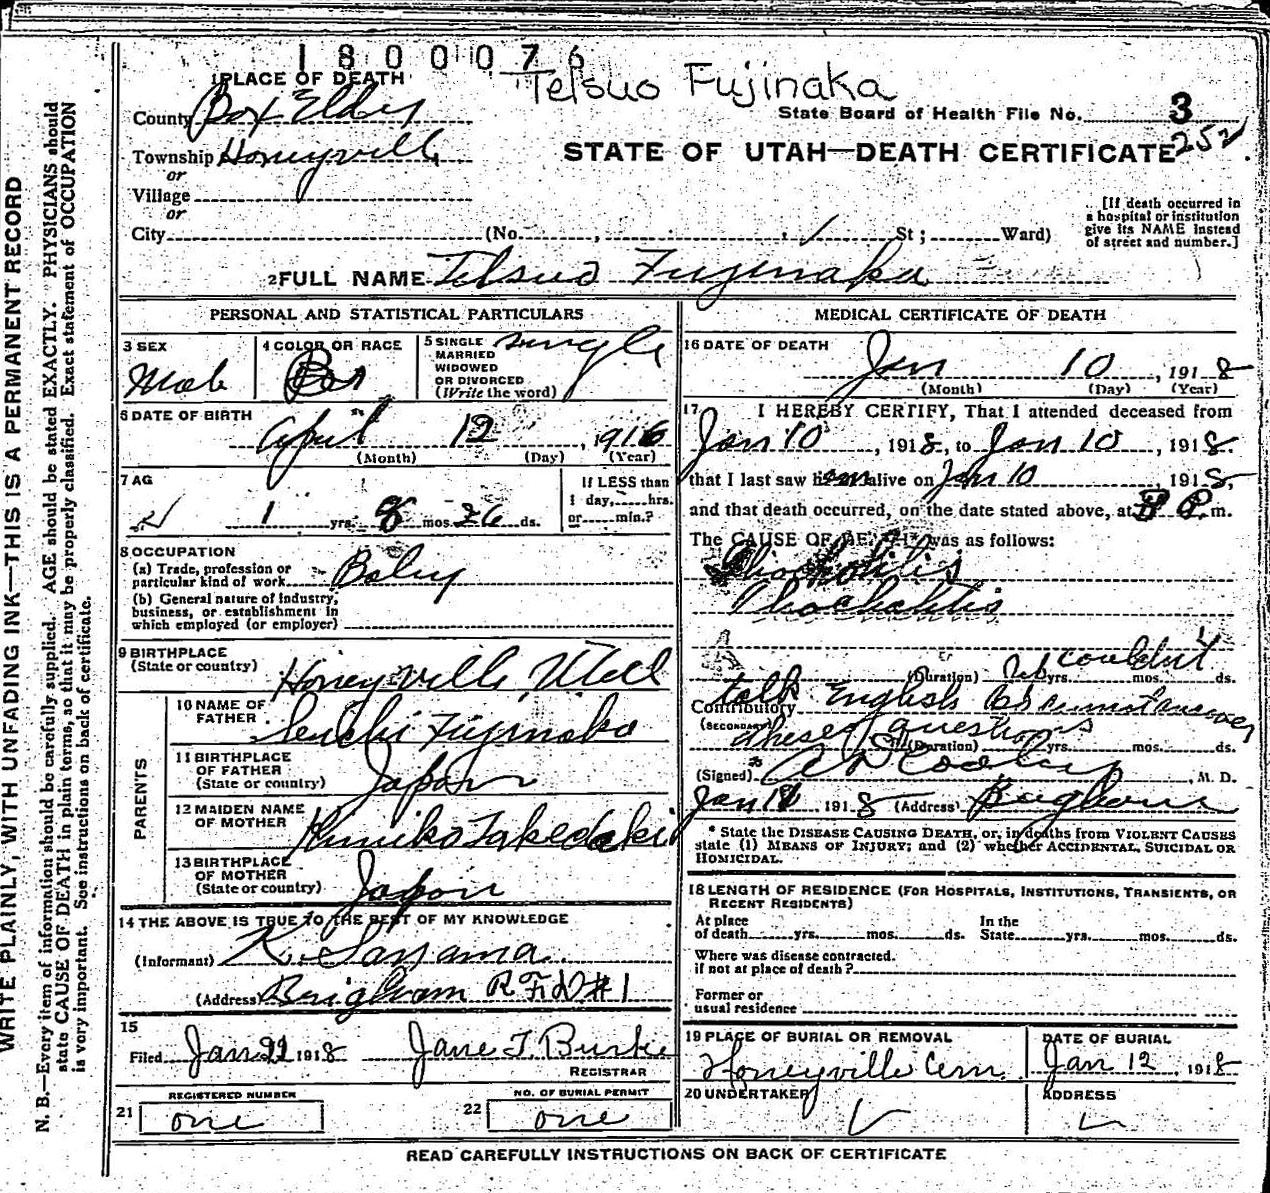 1800076
1 PLACE OF DEATH
Telsuo Fujinaka
County Box Elder
State Board of Health File No. 3
252
Township Honeyville
STATE OF UTAH—DEATH CERTIFICATE
or
Village
or
City (No. , St; Ward)
[If death occurred in
a hospital or institution
give its NAME instead
of street and number.]
2 FULL NAME Telsuo Fujinaka
PERSONAL AND STATISTICAL PARTICULARS
3 SEX
Male
4 COLOR OR RACE
5 SINGLE
MARRIED
WIDOWED
OR DIVORCED
(Write the word)
single
6 DATE OF BIRTH
April 12, 1916
(Month) (Day) (Year)
7 AG
1 yrs. 8 mos. 26 ds.
If LESS than
1 day, hrs.
or min.?
8 OCCUPATION
(a) Trade, profession or
particular kind of work Baby
(b) General nature of industry,
business, or establishment in
which employed (or employer)
9 BIRTHPLACE
(State or country) Honeyville Utah
PARENTS
10 NAME OF
FATHER Fujinaka
11 BIRTHPLACE
OF FATHER
(State or country) Japan
12 MAIDEN NAME
OF MOTHER Kimiko Takedaki
13 BIRTHPLACE
OF MOTHER
(State or country) Japan
14 THE ABOVE IS TRUE TO THE BEST OF MY KNOWLEDGE
(Informant) K.
(Address Brigham R F D #1
15
Filed Jan 22 1918 Jane T. Burke
REGISTRAR
REGISTERED NUMBER
21 one
NO. OF BURIAL PERMIT
22 one
MEDICAL CERTIFICATE OF DEATH
16 DATE OF DEATH
Jan 10, 1918
(Month) (Day) (Year)
17 I HEREBY CERTIFY, That I attended deceased from
Jan 10, 1918, to Jan 10, 1918.
that I last saw him alive on Jan 10 1918,
and that death occurred, on the date stated above, at P.m.
The CAUSE OF DEATH was as follows:
couldn't
(Duration) yrs. mos. ds.
talk English
Contributory
(SECONDARY) these questions
(Duration) yrs. mos. ds.
(Signed) Cooley, M. D.
Jan 1918 (Address) Brigham
* State the DISEASE CAUSING DEATH, or, in deaths from VIOLENT CAUSES
state (1) MEANS OF INJURY; and (2) whether ACCIDENTAL, SUICIDAL OR
HOMICIDAL.
18 LENGTH OF RESIDENCE (FOR HOSPITALS, INSTITUTIONS, TRANSIENTS, OR
RECENT RESIDENTS)
At place
of death yrs. mos. ds.
In the
State yrs. mos. ds.
Where was disease contracted.
if not at place of death?
Former or
usual residence
19 PLACE OF BURIAL OR REMOVAL
Honeyville Cem.
DATE OF BURIAL
Jan 12 1918
20 UNDERTAKER
ADDRESS
READ CAREFULLY INSTRUCTIONS ON BACK OF CERTIFICATE
WRITE PLAINLY, WITH UNFADING INK—THIS IS A PERMANENT RECORD
N. B.—Every item of information should be carefully supplied. AGE should be stated EXACTLY. PHYSICIANS should
state CAUSE OF DEATH in plain terms, so that it may be properly classified. Exact statement of OCCUPATION
is very important. See instructions on back of certificate.